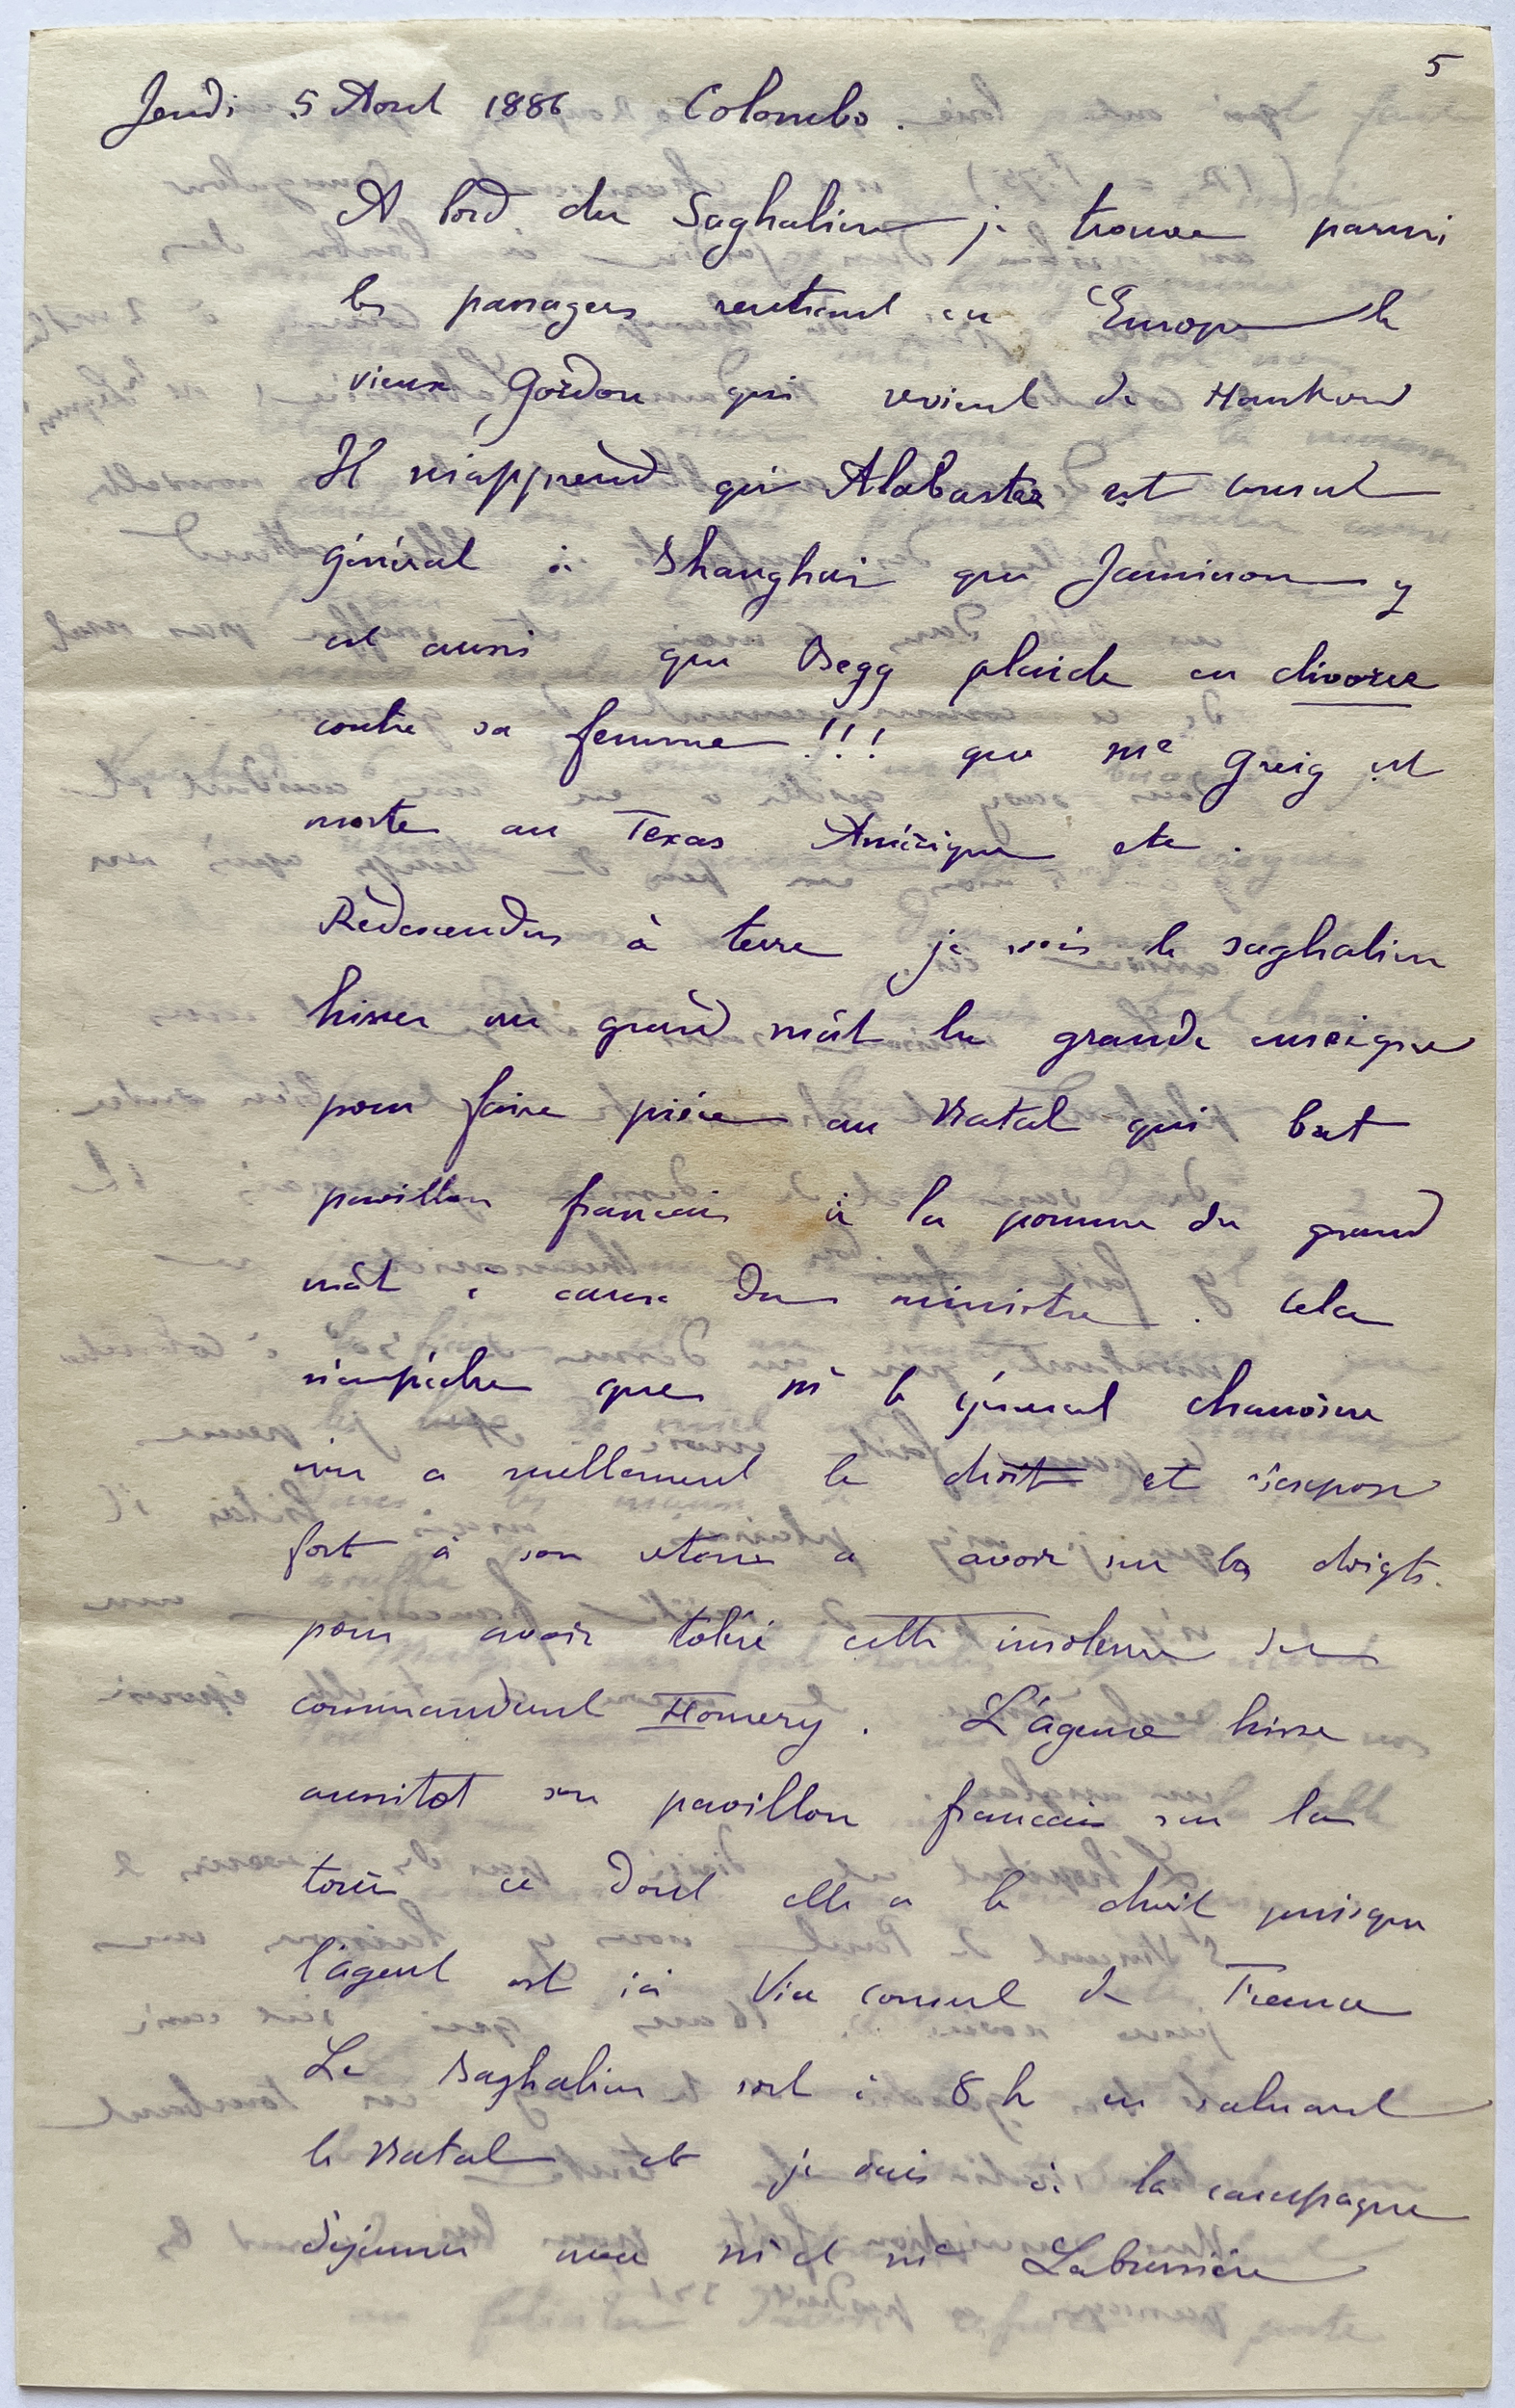 5
Jeudi 5 Aout 1886 Colombo.
A bord du Saghalien je trouve parmi
les passagers rentrant en Europe le
vieux Gordon qui revient de Hankow
Il m'apprend que Alabaster est consul
général à Shanghai que Jamieson y
est aussi que Begg plaide en divorce
contre sa femme !!! que Me Greig est
morte au Texas Amérique etc.
Redescendus à terre je vois le Saghalien
hisser au grand mât la grande enseigne
pour faire pièce au Natal qui bat
pavillon francais à la pomme du grand
mât à cause du ministre. Cela
n'empêche que Mr le général chanoine
n'en a nullement le droit et s'expose
fort à son retour a avoir sur les doigts.
pour avoir toléré cette insolence du
commandant Homery. L'agence hisse
aussitot son pavillon francais sur la
tour ce dont elle a le droit puisque
l'agent est ici Vice consul de France
Le Saghalien sort à 8 h en saluant
le Natal et je vais à la campagne
déjeuner avec Mr et Me Labussière